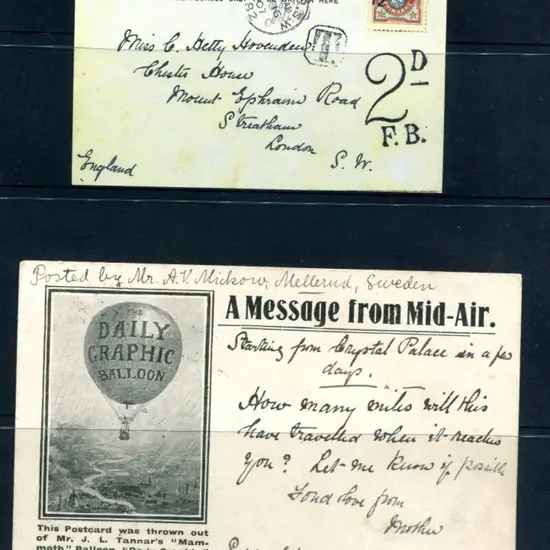 Miss C. Hetty Hovenden
Chester House
Mount Ephraim Road
Streatham
London
S. W.
England
T
2D
F.B.
Posted by Mr. A.V. Mickow, Mellerud, Sweden
A Message from Mid-Air.
Starting from Crystal Palace in a few
days.
How many miles will this
have travelled when it reaches
you? Let me know if possible
Fond love from
Mother
THE
DAILY
GRAPHIC
BALLOON
This Postcard was thrown out
of Mr. J. L. Tannar's "Mam-
moth" Balloon